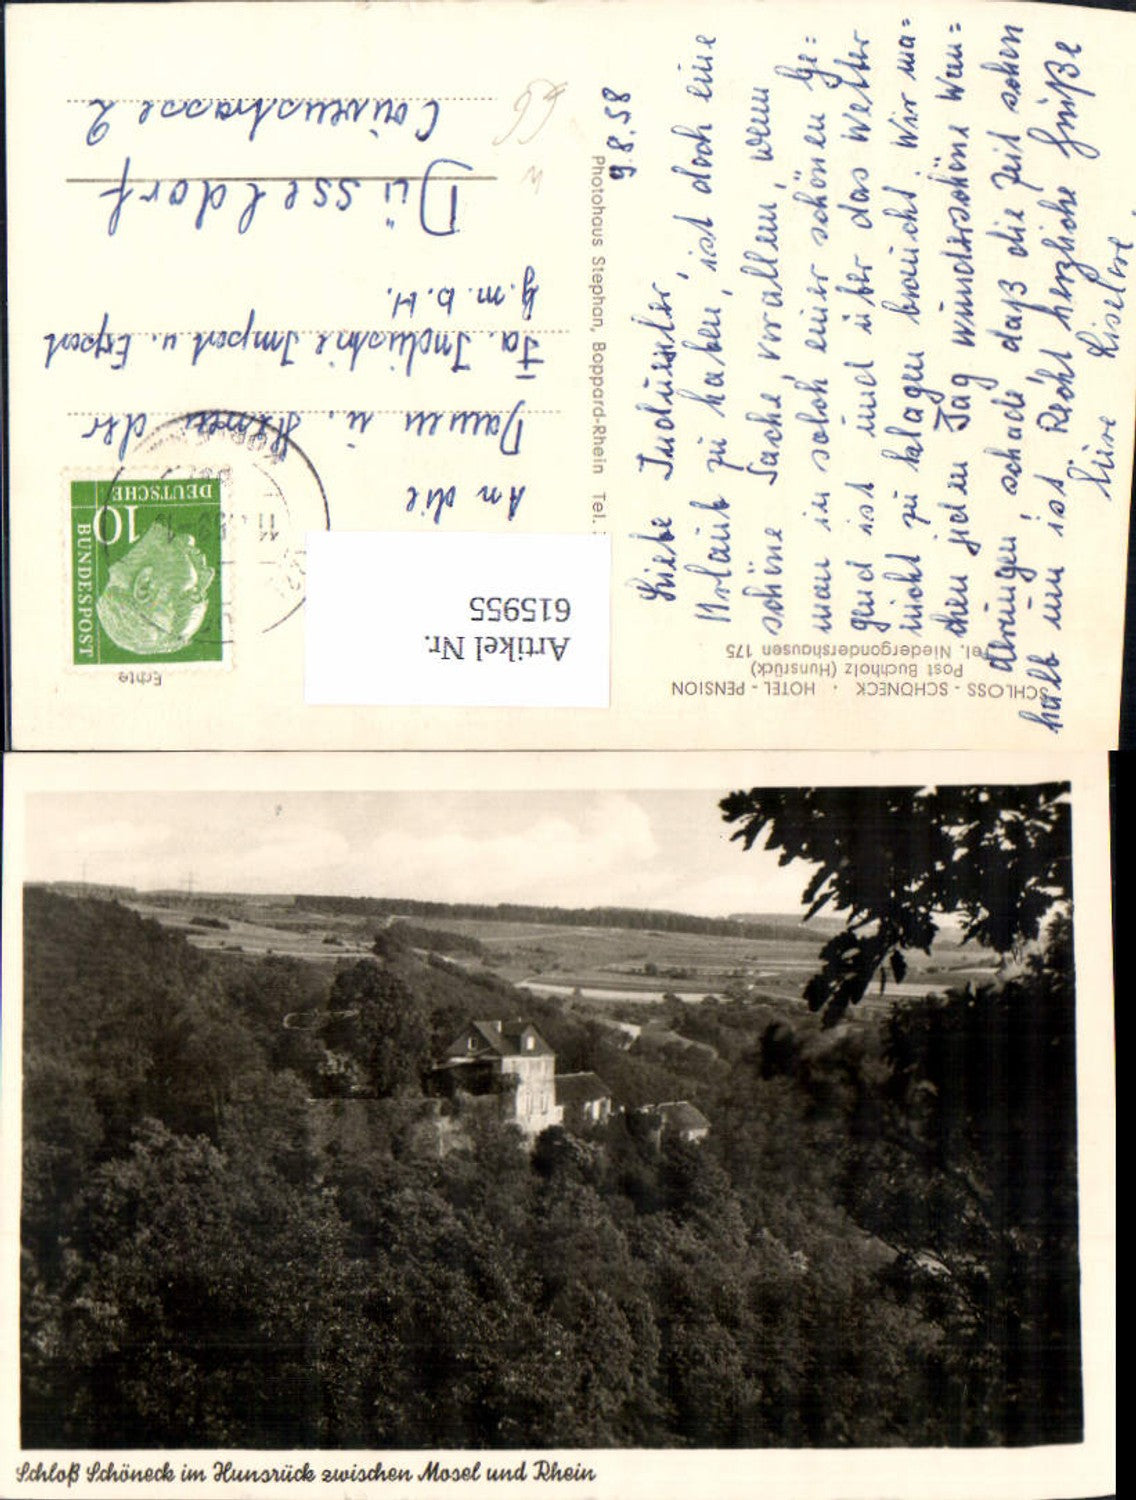 SCHLOSS - SCHÖNECK · HOTEL - PENSION
Post Buchholz (Hunsrück)
Tel. Niedergondershausen 175
9.8.58
Liebe Indurster, ist doch eine
Urlaub zu haben, ist doch eine
schöne Sache, vorallem, wenn
man in solch einer schönen Ge=
gend ist und über das Wetter
nicht zu klagen braucht. Wir ma=
chen jeden Tag wunderschöne Wan=
derungen; schade, daß die Zeit schon
halb um ist. Recht herzliche Grüße
Eure Liselore.
Photohaus Stephan, Boppard-Rhein Tel.
Echte
DEUTSCHE
BUNDESPOST
10
Artikel Nr.
615955
An die
Damen u. Herren der
Fa. Industrie Import u. Export
G.m.b.H.
Düsseldorf
Couvenstrasse 2
Schloß Schöneck im Hunsrück zwischen Mosel und Rhein